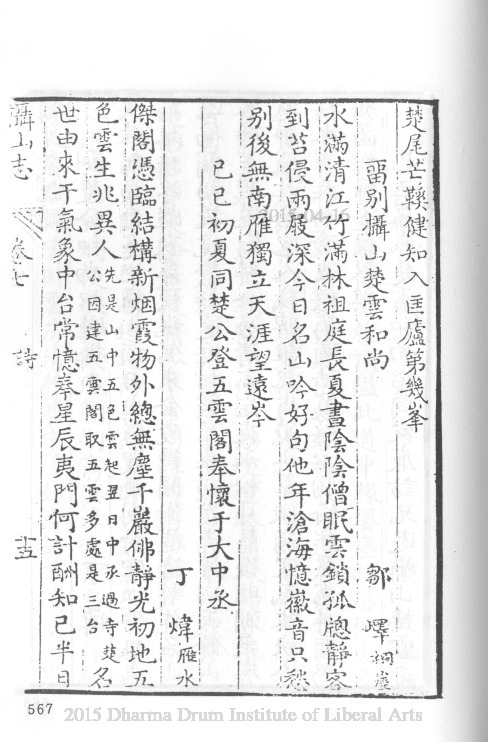 麈尾芒鞵健知入匡廬第幾峯
畱別攝山楚雲和尚
鄒嶧桐崖
水滿清江竹滿林祖庭長夏晝陰陰僧眠雲鎖孤牕靜客
到苔侵雨屐深今日名山吟好句他年滄海憶徽音只愁
别後無南雁獨立天涯望遠岑
己巳初夏同楚公登五雲閣奉懷于大中丞
丁煒雁水
傑閣憑臨結構新烟霞物外總無塵千巖佛靜光初地五
色雲生兆異人先是山中五色雲起翌日中丞過寺楚公因建五雲閣取五雲多處是三台名
世由來干氣象中台常憶奉星辰夷門何計酬知己半日
攝山志 卷七 詩 十五
567
2015 Dharma Drum Institute of Liberal Arts